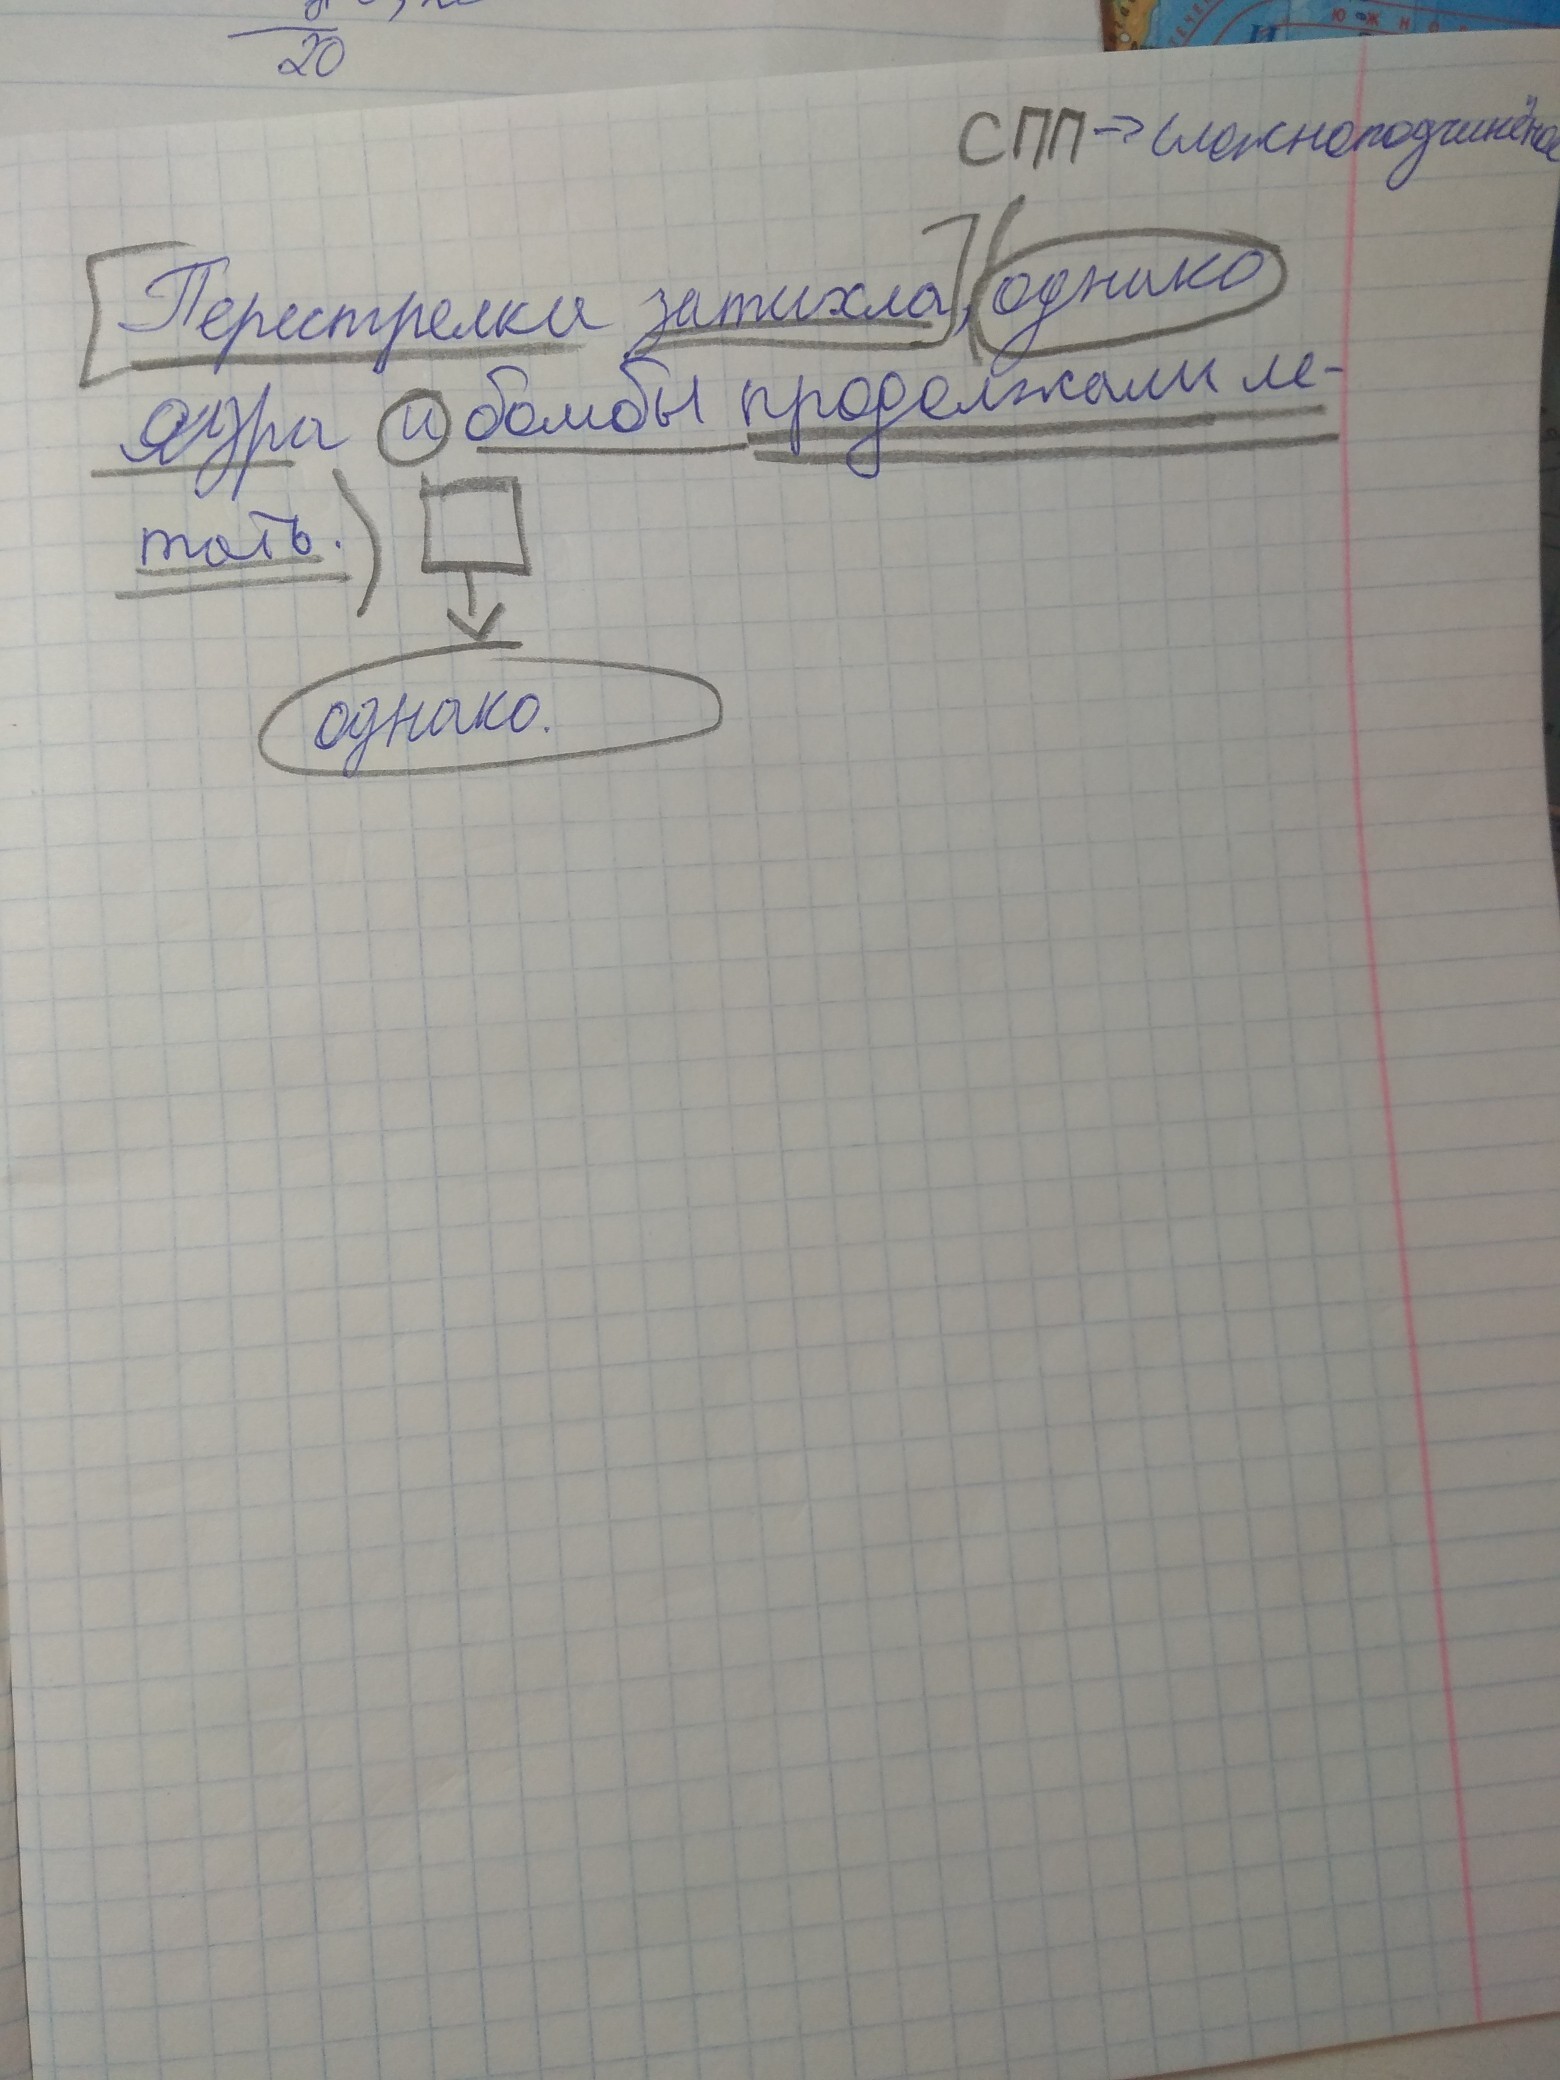 20
СПП → сложноподчинённое
Перестрелка затихла, однако
ядра и бомбы продолжали ле-
тать.
однако.